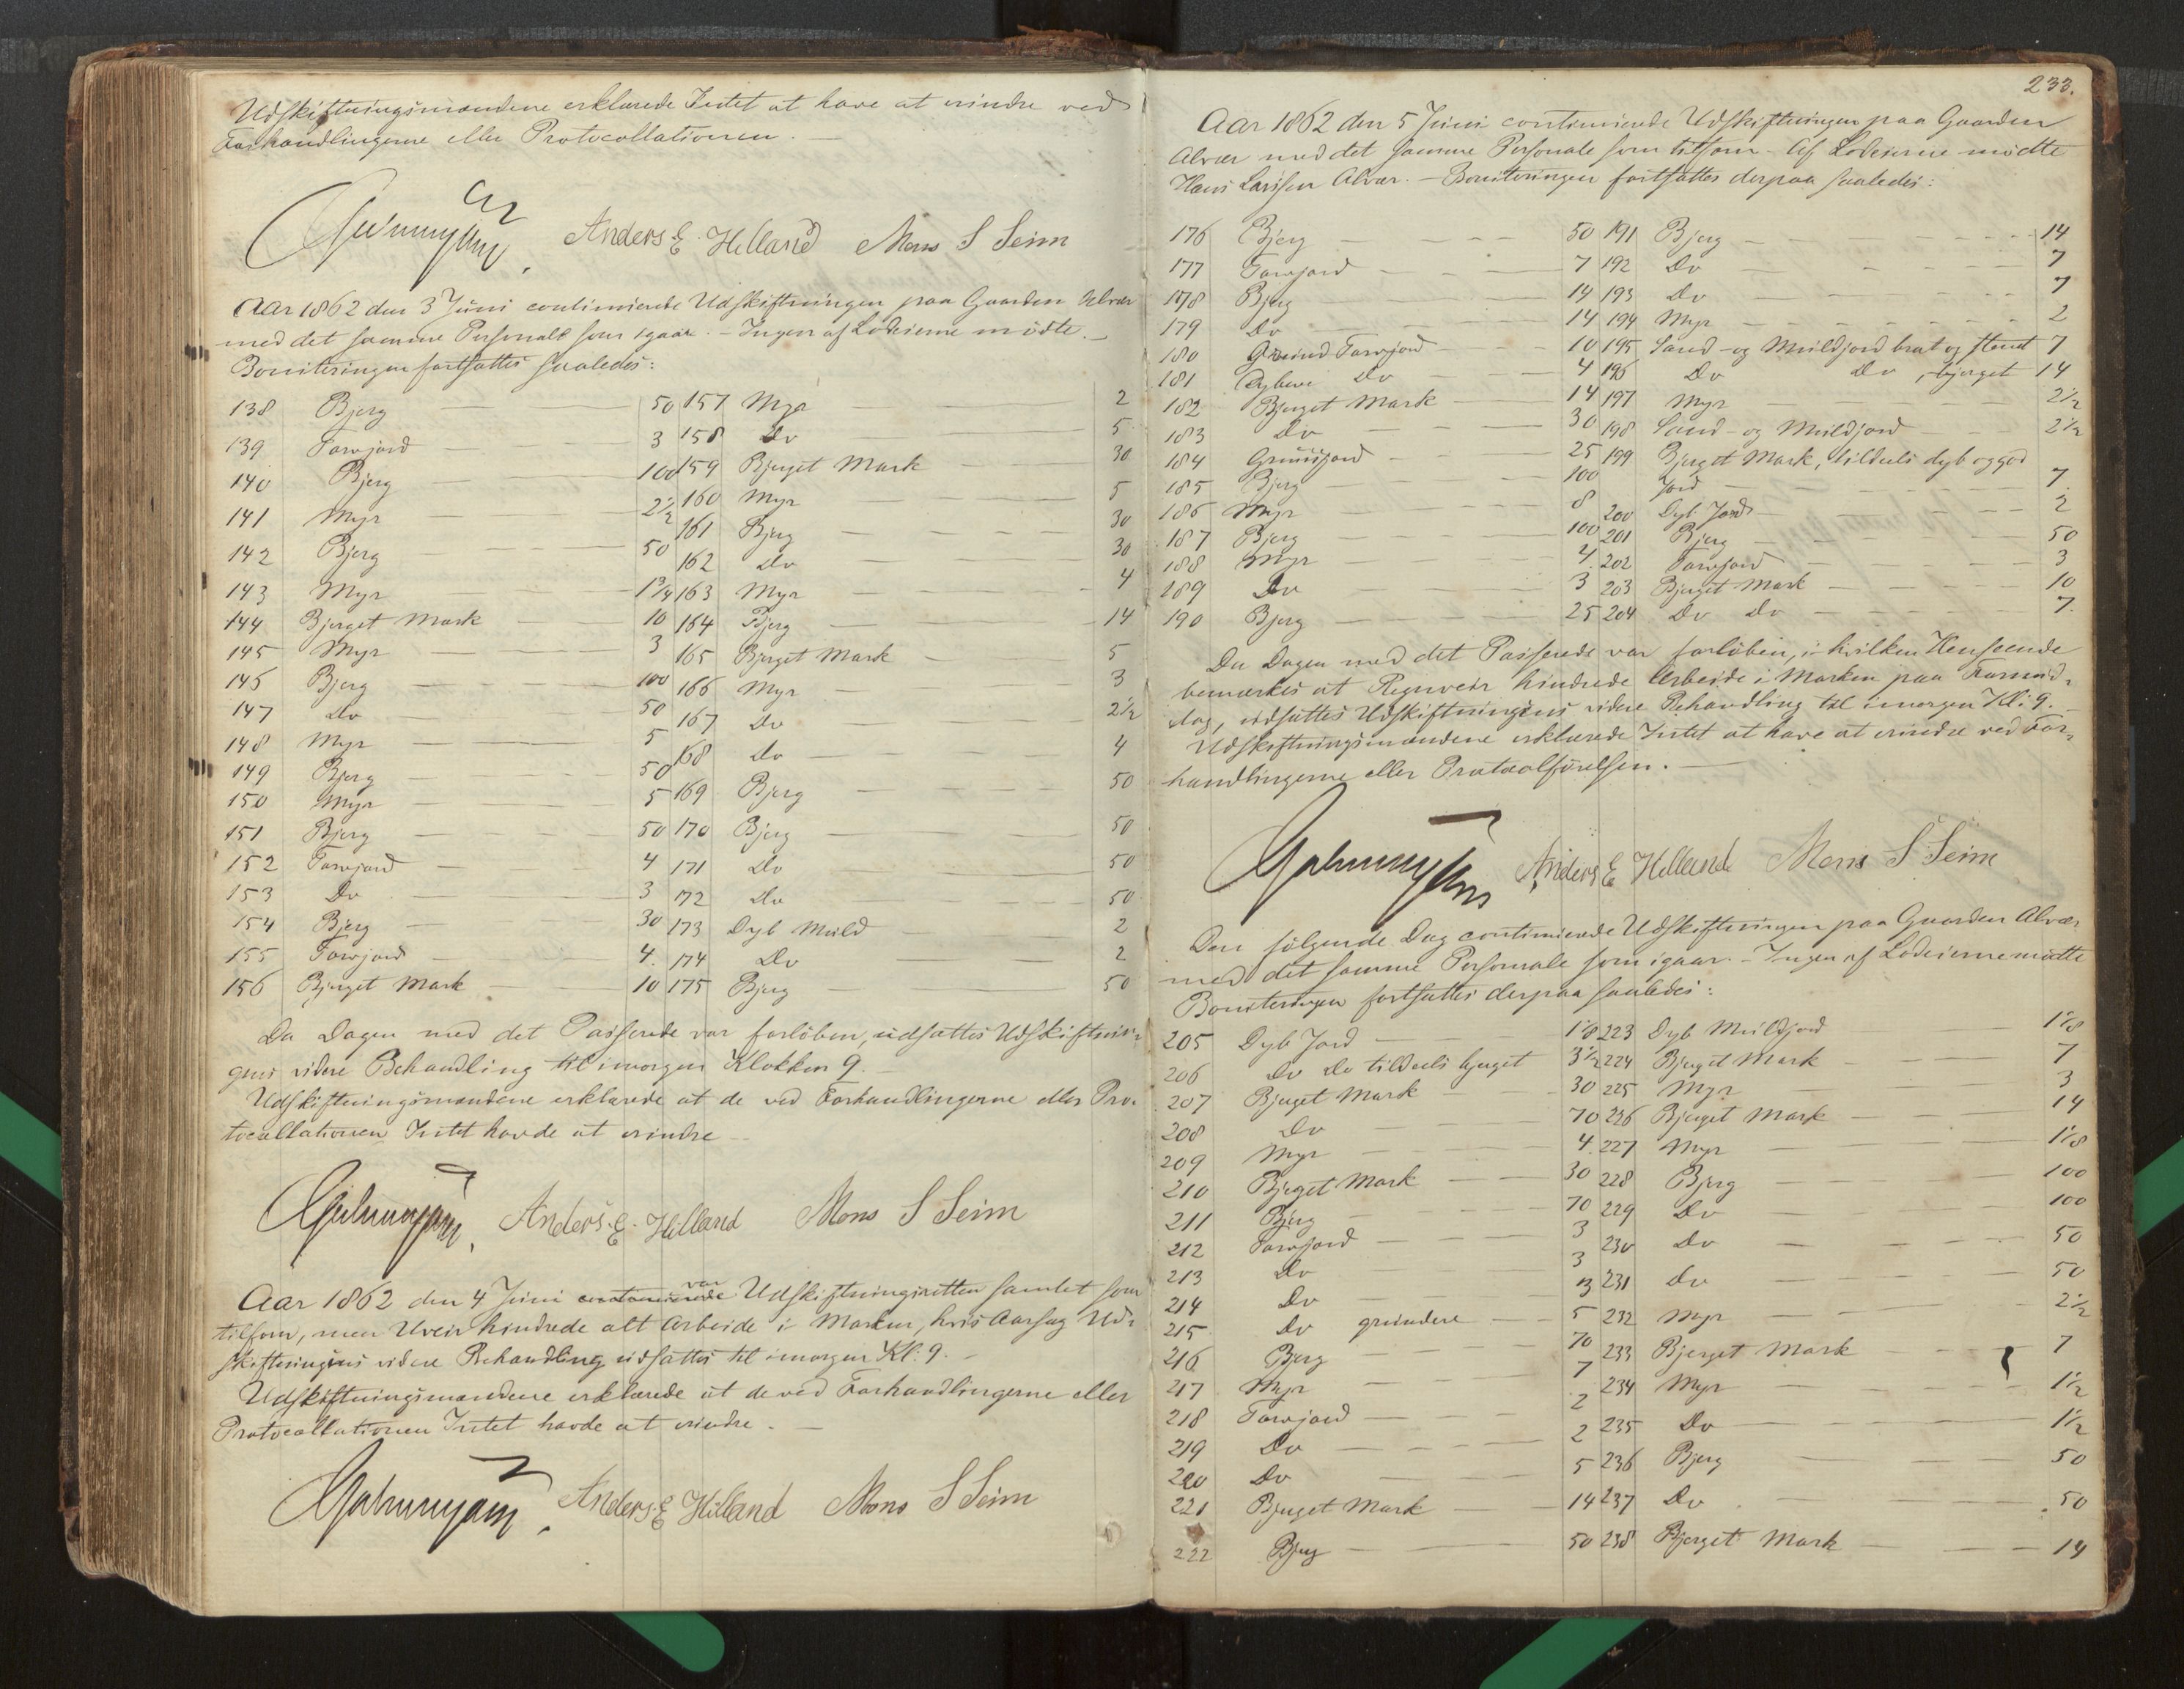 Udskiftningsmændene erklærede Intet at have at erindre ved
Forhandlingerne eller Protocollationen. —
Anders E. Helland Mons S Seim
Aar 1862 den 3 Juni continuerede Udskiftningen paa Gaarden Alvær
med det samme Personale som igaar. – Ingen af Lodeierne mödte. –
Boniteringen fortsattes saaledes:
138 Bjerg — 50
139 Torvjord — 3
140 Bjerg — 100
141 Myr — 2½
142 Bjerg — 50
143 Myr — 1¾
144 Bjerget Mark — 10
145 Myr — 3
146 Bjerg — 100
147 Do — 50
148 Myr — 5
149 Bjerg — 50
150 Myr — 5
151 Bjerg — 50
152 Torvjord — 4
153 Do — 3
154 Bjerg — 30
155 Torvjord — 4
156 Bjerget Mark — 10
157 Myr — 2
158 Do — 5
159 Bjerget Mark — 30
160 Myr — 5
161 Bjerg — 30
162 Do — 30
163 Myr — 4
164 Bjerg — 14
165 Bjerget Mark — 5
166 Myr — 3
167 Do — 2½
168 Do — 4
169 Bjerg — 50
170 Bjerg — 50
171 Do — 50
172 Do — 50
173 Dyb Muld — 2
174 Do — 2
175 Bjerg — 50
Da Dagen med det Passerede var forløben, udsattes Udskiftnin-
gens videre Behandling til imorgen Klokken 9. –
Udskiftningsmændene erklærede at de ved Forhandlingerne eller Pro-
tocollationen Intet havde at erindre –
Anders. E. Helland Mons S Seim
Aar 1862 den 4 Juni continuerede var Udskiftningsretten samlet som
tilforn, men Uveir hindrede alt Arbeide i Marken, hvis Aarsag Ud-
skiftningens videre Behandling udsattes til imorgen Kl: 9. –
Udskiftningsmændene erklærede at de ved Forhandlingerne eller
Protocollationen Intet havde at erindre. –
Anders. E Helland Mons S Seim
233.
Aar 1862 den 5 Juni continuerede Udskiftningen paa Gaarden
Alvær med det samme Personale som tilforn – Af Lodeierne mödte
Hans Larssen Alvær. – Boniteringen fortsattes derpaa saaledes:
176 Bjerg — 50
177 Torvjord — 7
178 Bjerg — 14
179 Do — 14
180 Grund Torvjord — 10
181 Dybere Do — 4
182 Bjerget Mark — 14
183 Do — 30
184 Gruusjord — 25
185 Bjerg — 100
186 Myr — 8
187 Bjerg — 100
188 Myr — 4
189 Do — 3
190 Bjerg — 25
191 Bjerg — 14
192 Do — 7
193 Do — 7
194 Myr — 2
195 Sand- og Muldjord brat og stenet 7
196 Do Do, bjerget 14
197 Myr — 2½
198 Sand- og Muldjord — 2½
199 Bjerget Mark, tildeels dyb og god
Jord — 7
200 Dyb Jord — 2
201 Bjerg — 50
202 Torvjord — 3
203 Bjerget Mark — 10
204 Do Do — 7.
Da Dagen med det Passerede var forløben, i hvilken Henseende
bemærkes at Regnveir hindrede Arbeide i Marken paa Formid-
dag, udsattes Udskiftningens videre Behandling til imorgen Kl: 9. –
Udskiftningsmændene erklærede Intet at have at erindre ved For-
handlingerne eller Protocolførelsen. —
Anders E Helland Mons S Seim
Den følgende Dag continuerede Udskiftningen paa Gaarden Alvær
med det samme Personale som igaar. – Ingen af Lodeierne mödte
Boniteringen fortsattes derpaa saaledes:
205 Dyb Jord — 1⅛
206 Do Do tildeels bjerget 3½
207 Bjerget Mark — 30
208 Do — 70
209 Myr — 4
210 Bjerget Mark — 30
211 Bjerg — 70
212 Torvjord — 3
213 Do — 3
214 Do — 3
215 Do grundere — 5
216 Bjerg — 70
217 Myr — 7
218 Torvjord — 2
219 Do — 2
220 Do — 5
221 Bjerget Mark — 14
222 Bjerg — 50
223 Dyb Muldjord — 1⅛
224 Bjerget Mark — 7
225 Myr — 3
226 Bjerget Mark — 14
227 Myr — 1⅛
228 Bjerg — 100
229 Do — 100
230 Do — 50
231 Do — 50
232 Myr — 2½
233 Bjerget Mark — 7
234 Myr — 1½
235 Do — 1½
236 Bjerg — 50
237 Do — 50
238 Bjerget Mark — 14